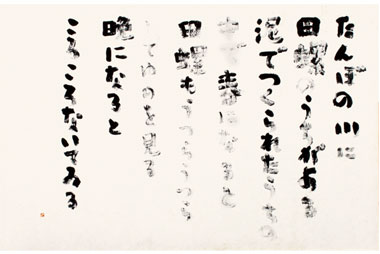 たんぼの川に
田螺のうちがある
泥でつくられたうちの
中で春になると
田螺もうつらうつら
してゆめを見る
晩になると
ころころないてゐる